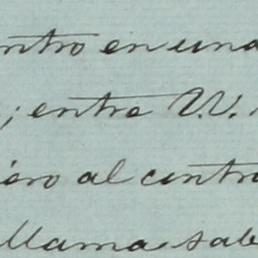 ntro en una
; entre V.V.
ero al centro
llama sabe